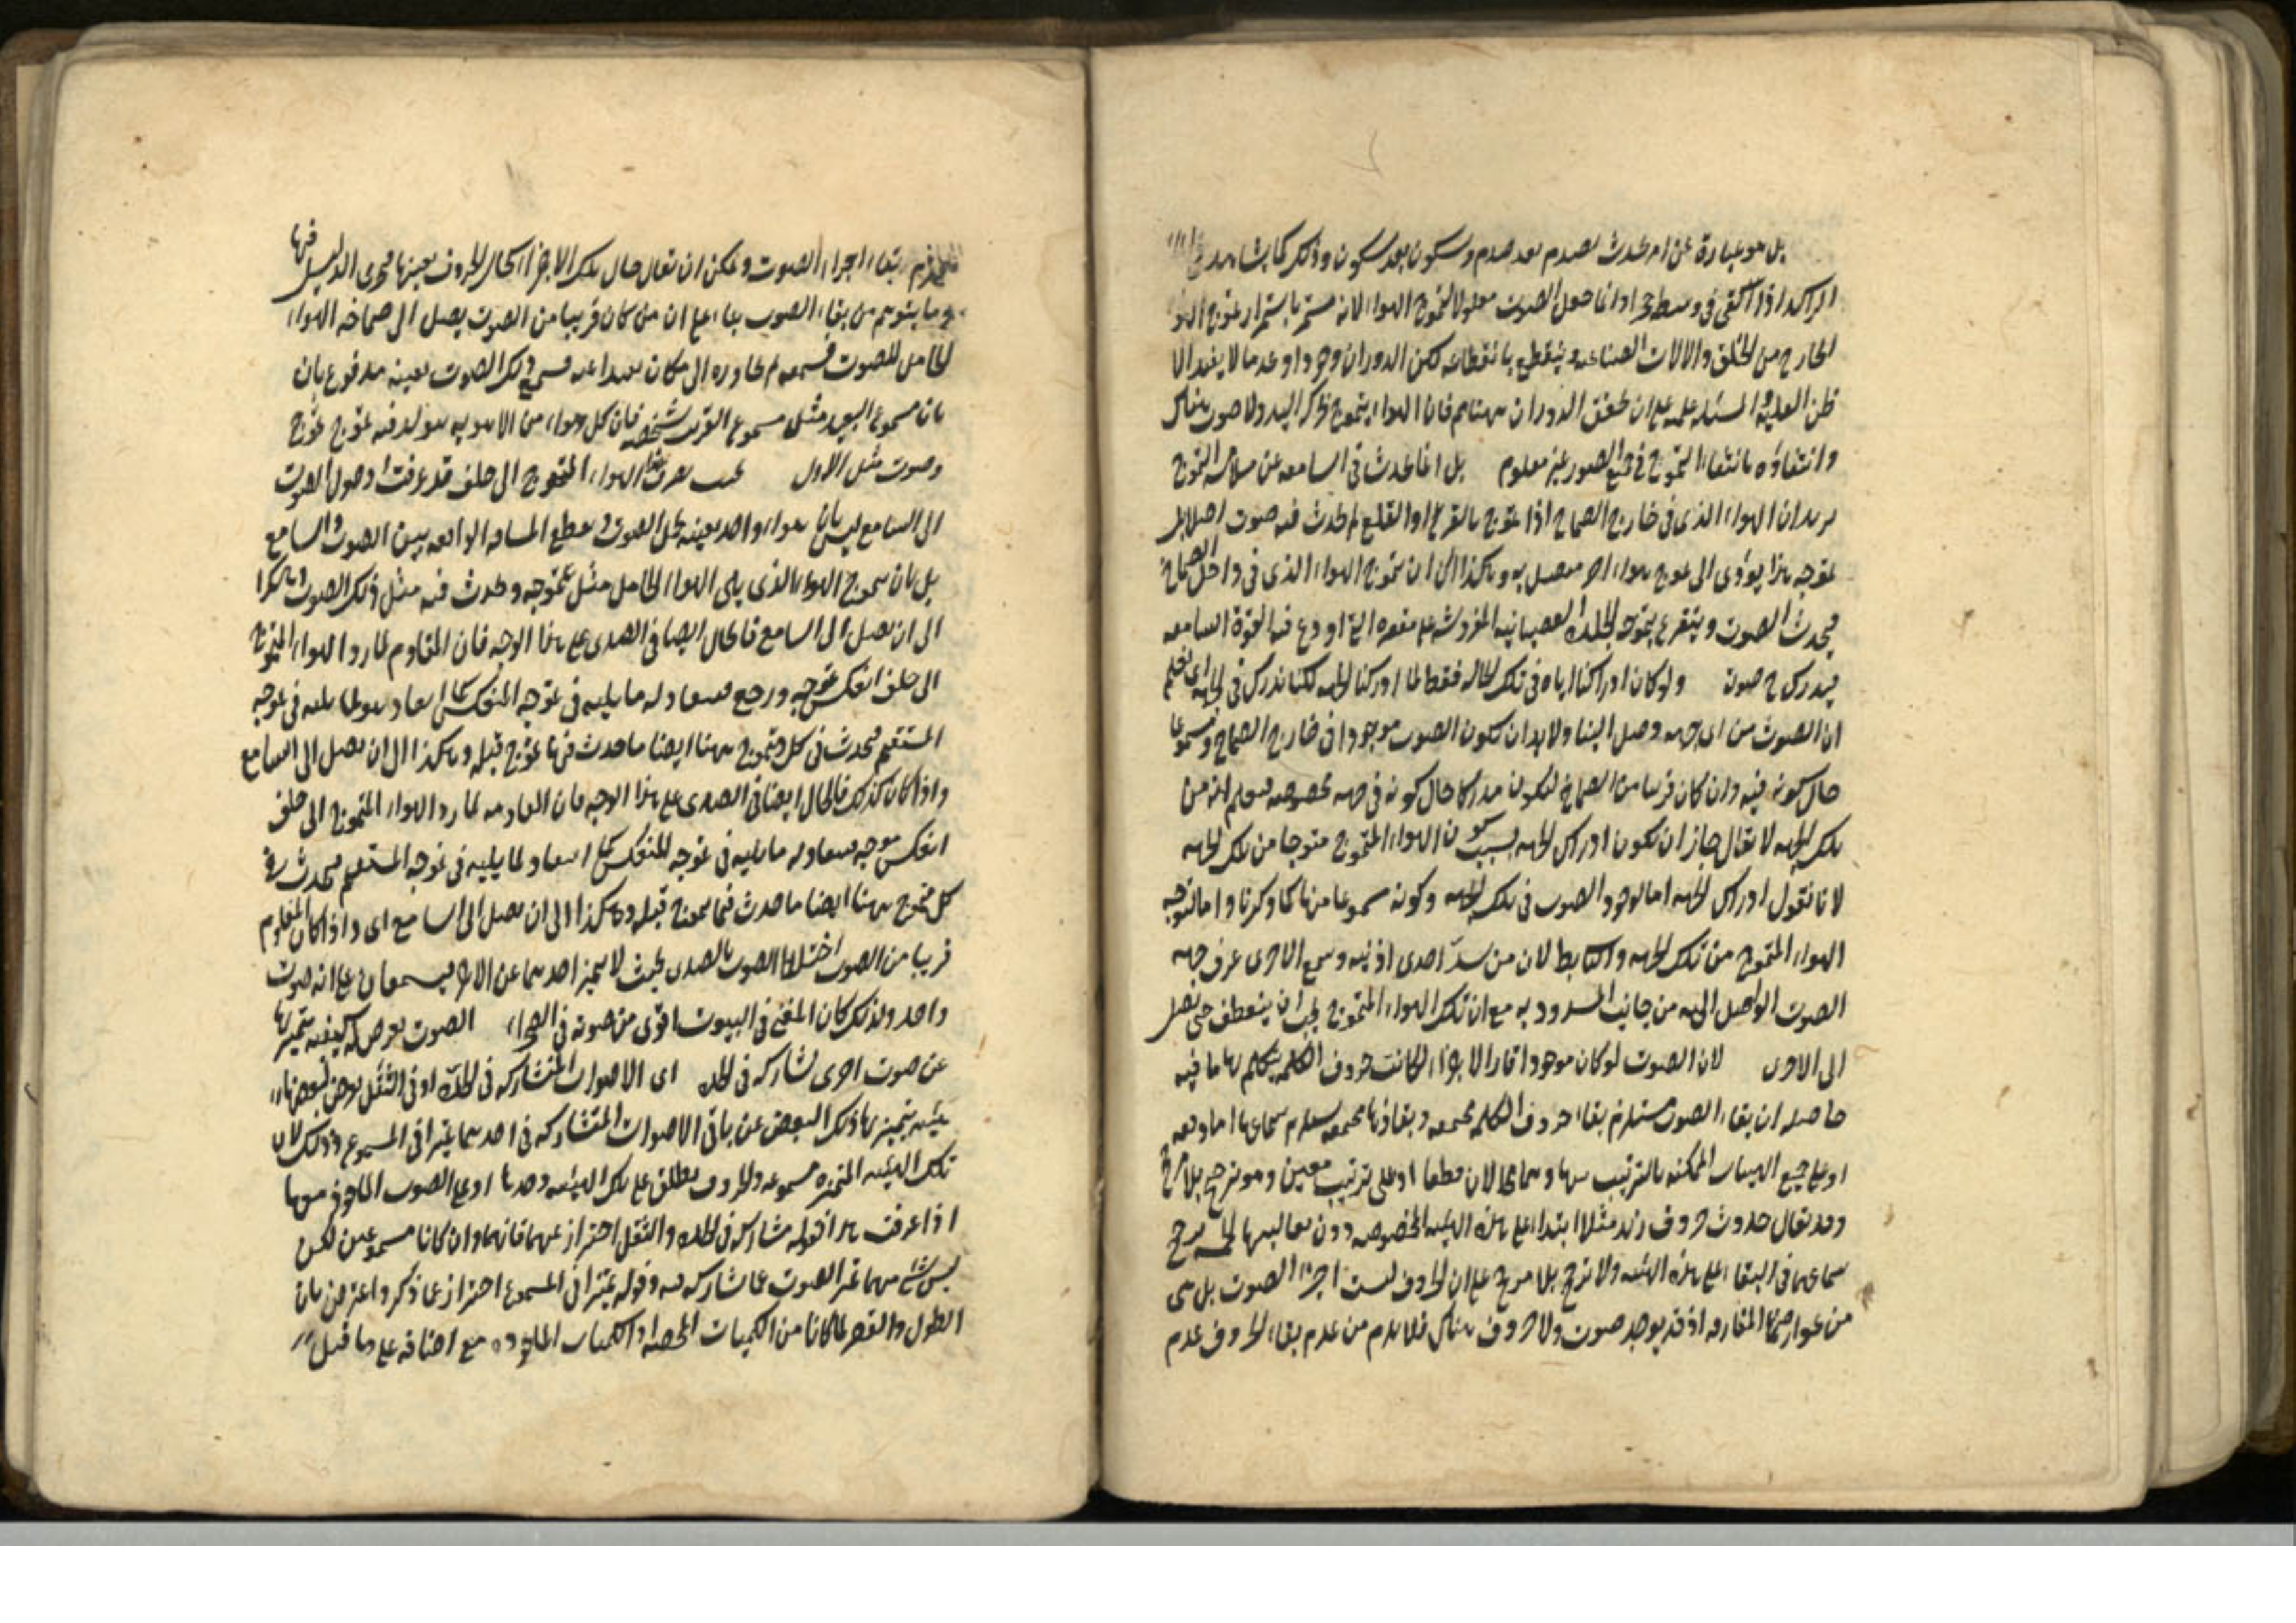 بل هو عبارة عن امر يحدث بصدم بعد صدم وسكون بعد سكون وذلك كما يشاهد
الراكد اذا القى فى وسطه حجر وانما جعل الصوت معلولا لتموج الهواء لانه مستمر باستمرار تموج الهواء
الخارج من الحلق والالات الصناعيه وينقطع بانقطاعه لكن الدوران وجودا وعدما لا يفيد الا
ظن العلية والمسئله علميه على ان تحقق الدوران ههنا فان الهواء يتموج بحركة اليد ولا صوت هناك
وانتفاؤه بانتفاء التموج فى جميع الصور غير معلوم بل انما يحدث فى السامعه عن ملامسة التموج
يريد ان الهواء الذى فى خارج الصماخ اذا تموج بالقرع او القلع لم يحدث فيه صوت اصلا بل
تموجه هذا يؤدى الى تموج هواء اخر متصل به وهكذا الى ان يتموج الهواء الذى فى داخل الصماخ
فيحدث الصوت ويتقرع بتموجه الجلدة العصبانيه المفروشه على مقعره التى اودع فيها القوة السامعه
فيدرك ح صوت ولو كان ادراكنا اياه فى تلك الحاله فقط لما ادركنا الجهه لكنا ندرك فى الجمله اى نعلم
ان الصوت من اى جهه وصل الينا ولا بد ان يكون الصوت موجودا فى خارج الصماخ ومسموعا
حال كونه فيه وان كان قريبا من الصماخ ليكون مدركا حال كونه فى جهه مخصوصه فيعلم انه من
تلك الجهه لا يقال جاز ان يكون ادراك الجهه بسبب كون الهواء المتموج متوجها من تلك الجهه
لانا نقول ادراك الجهه اما لوجود الصوت فى تلك الجهه وكونه مسموعا منها كما ذكرنا واما لتوجه
الهواء المتموج من تلك الجهه والثانى باطل لان من سد احدى اذنيه وسمع الاخرى عرف جهه
الصوت الواصل اليه من جانب المسدود به مع ان تلك الهواء المتموج يجب ان ينعطف حتى يصل
الى الاخرى لان الصوت لو كان موجودا قار الاجزاء لكانت حروف الكلمه يتكلم بها ما فيه
حاصله ان بقاء الصوت مستلزم بقاء حروف الكلمه مجتمعه وبقاؤها مجتمعه يستلزم سماعها اما دفعه
او على جميع الهيئات الممكنه بالترتيب بينها وسماعها لان قطعا او على ترتيب معين وهو ترجيح بلا مرجح
وقد يقال حدوث حروف زيد مثلا ابتداء على هذه الهيئه المخصوصه دون تقاليبها الخمسه مرجح
سماعها فى البقاء على هذه الهيئه ولا ترجيح بلا مرجح على ان الحروف ليست اجزاء الصوت بل هى
من عوارضها المفارقه اذ قد يوجد صوت ولا حروف هناك فلا يلزم من عدم بقاء الحروف عدم
بقاء اجزاء الصوت ويمكن ان يقال حال تلك الاجزاء كحال الحروف بعينها فيجرى الدليل فيها
وما يتوهم من بقاء الصوت بناء على ان من كان قريبا من الصوت يصل الى صماخه الهواء
الحامل للصوت فيسمعه ثم يجاوره الى مكان بعيد عنه فيسمع ذلك الصوت بعينه مدفوع بان
بان مسموع البعيد مثل مسموع القريب لا شخصه فان كل هواء من الاهويه يتولد فيه تموج تموج
وصوت مثل الاول الهواء المتموج الى خلف قد عرفت ان وصول الصوت
الى السامع ليس بان هواء واحد بعينه يحمل الصوت ويقطع المسافه الواقعه بين الصوت والسامع
بل بان يتموج الهواء الذى يلى الهواء الحامل مثل تموجه ويحدث فيه مثل ذلك الصوت وهكذا
الى ان يصل الى السامع فالحال ايضا فى الصدى على هذا الوجه فان المقاوم لما رد الهواء المتموج
الى خلف انعكس تموجه ورجع فيعاد له ما يليه فى تموجه المنعكس كما يعاد هو لما يليه فى تموجه
المستقيم فيحدث فى كل متموج ههنا ايضا ما حدث فيها تموج قبله وهكذا الى ان يصل الى السامع
واذا كان كذلك فالحال ايضا فى الصدى على هذا الوجه فان المصادمه لما رد الهواء المتموج الى خلف
انعكس موجه فيعاد له ما يليه فى تموجه المنعكس كما يعاد لما يليه فى تموجه المستقيم فيحدث فى
كل متموج ههنا ايضا ما حدث فيما تموج قبله وهكذا الى ان يصل الى السامع اى واذا كان المقاوم
قريبا من الصوت اختلط الصوت بالصدى بحيث لا يميز احدهما عن الاخر فيسمعان على انه صوت
واحد ولذلك كان المغنى فى البيوت اقوى من صوته فى الصحراء الصوت يعرض له كيفيه يتميز بها
عن صوت اخرى تشاركه فى الحده اى الاصوات المتشاركه فى الحدة او فى الثقل يعرض لبعضها
هيئه يتميز بها ذلك البعض عن باقى الاصوات المتشاركه فى احدهما تميزا فى المسموع وذلك لان
تلك الهيئه المتميزه مسموعه والحروف يطلق على تلك الهيئه وحدها او على الصوت الماخوذ معها
اذا عرفت هذا فقوله مشاركه فى الحده والثقل احتراز عنهما فانهما وان كانا مسموعين لكن
ليس شئ منهما تميز الصوت عما يشاركه فيه وقوله تميزا فى المسموع احتراز عما ذكر واعترض بان
الطول والقصر لما كانا من الكميات المحضه او الكميات الماخوذه مع اضافه على ما قيل